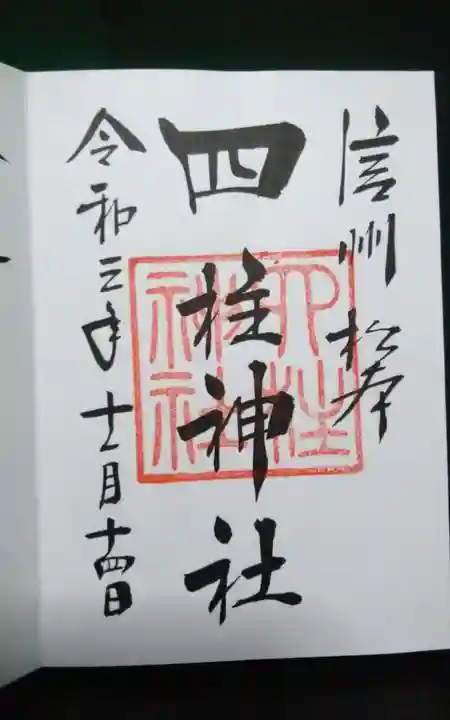 信州 松本
四柱神社
四柱神社
令和三年十二月十四日